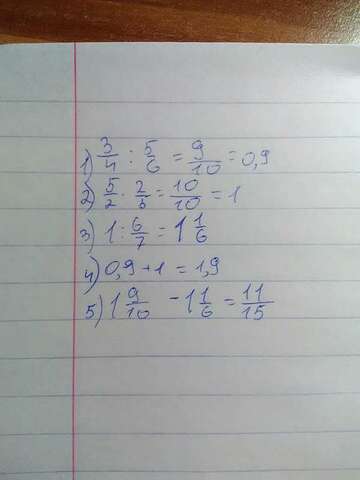 1) 3/4 : 5/6 = 9/10 = 0,9
2) 5/2 · 2/5 = 10/10 = 1
3) 1 : 6/7 = 1 1/6
4) 0,9 + 1 = 1,9
5) 1 9/10 - 1 1/6 = 11/15